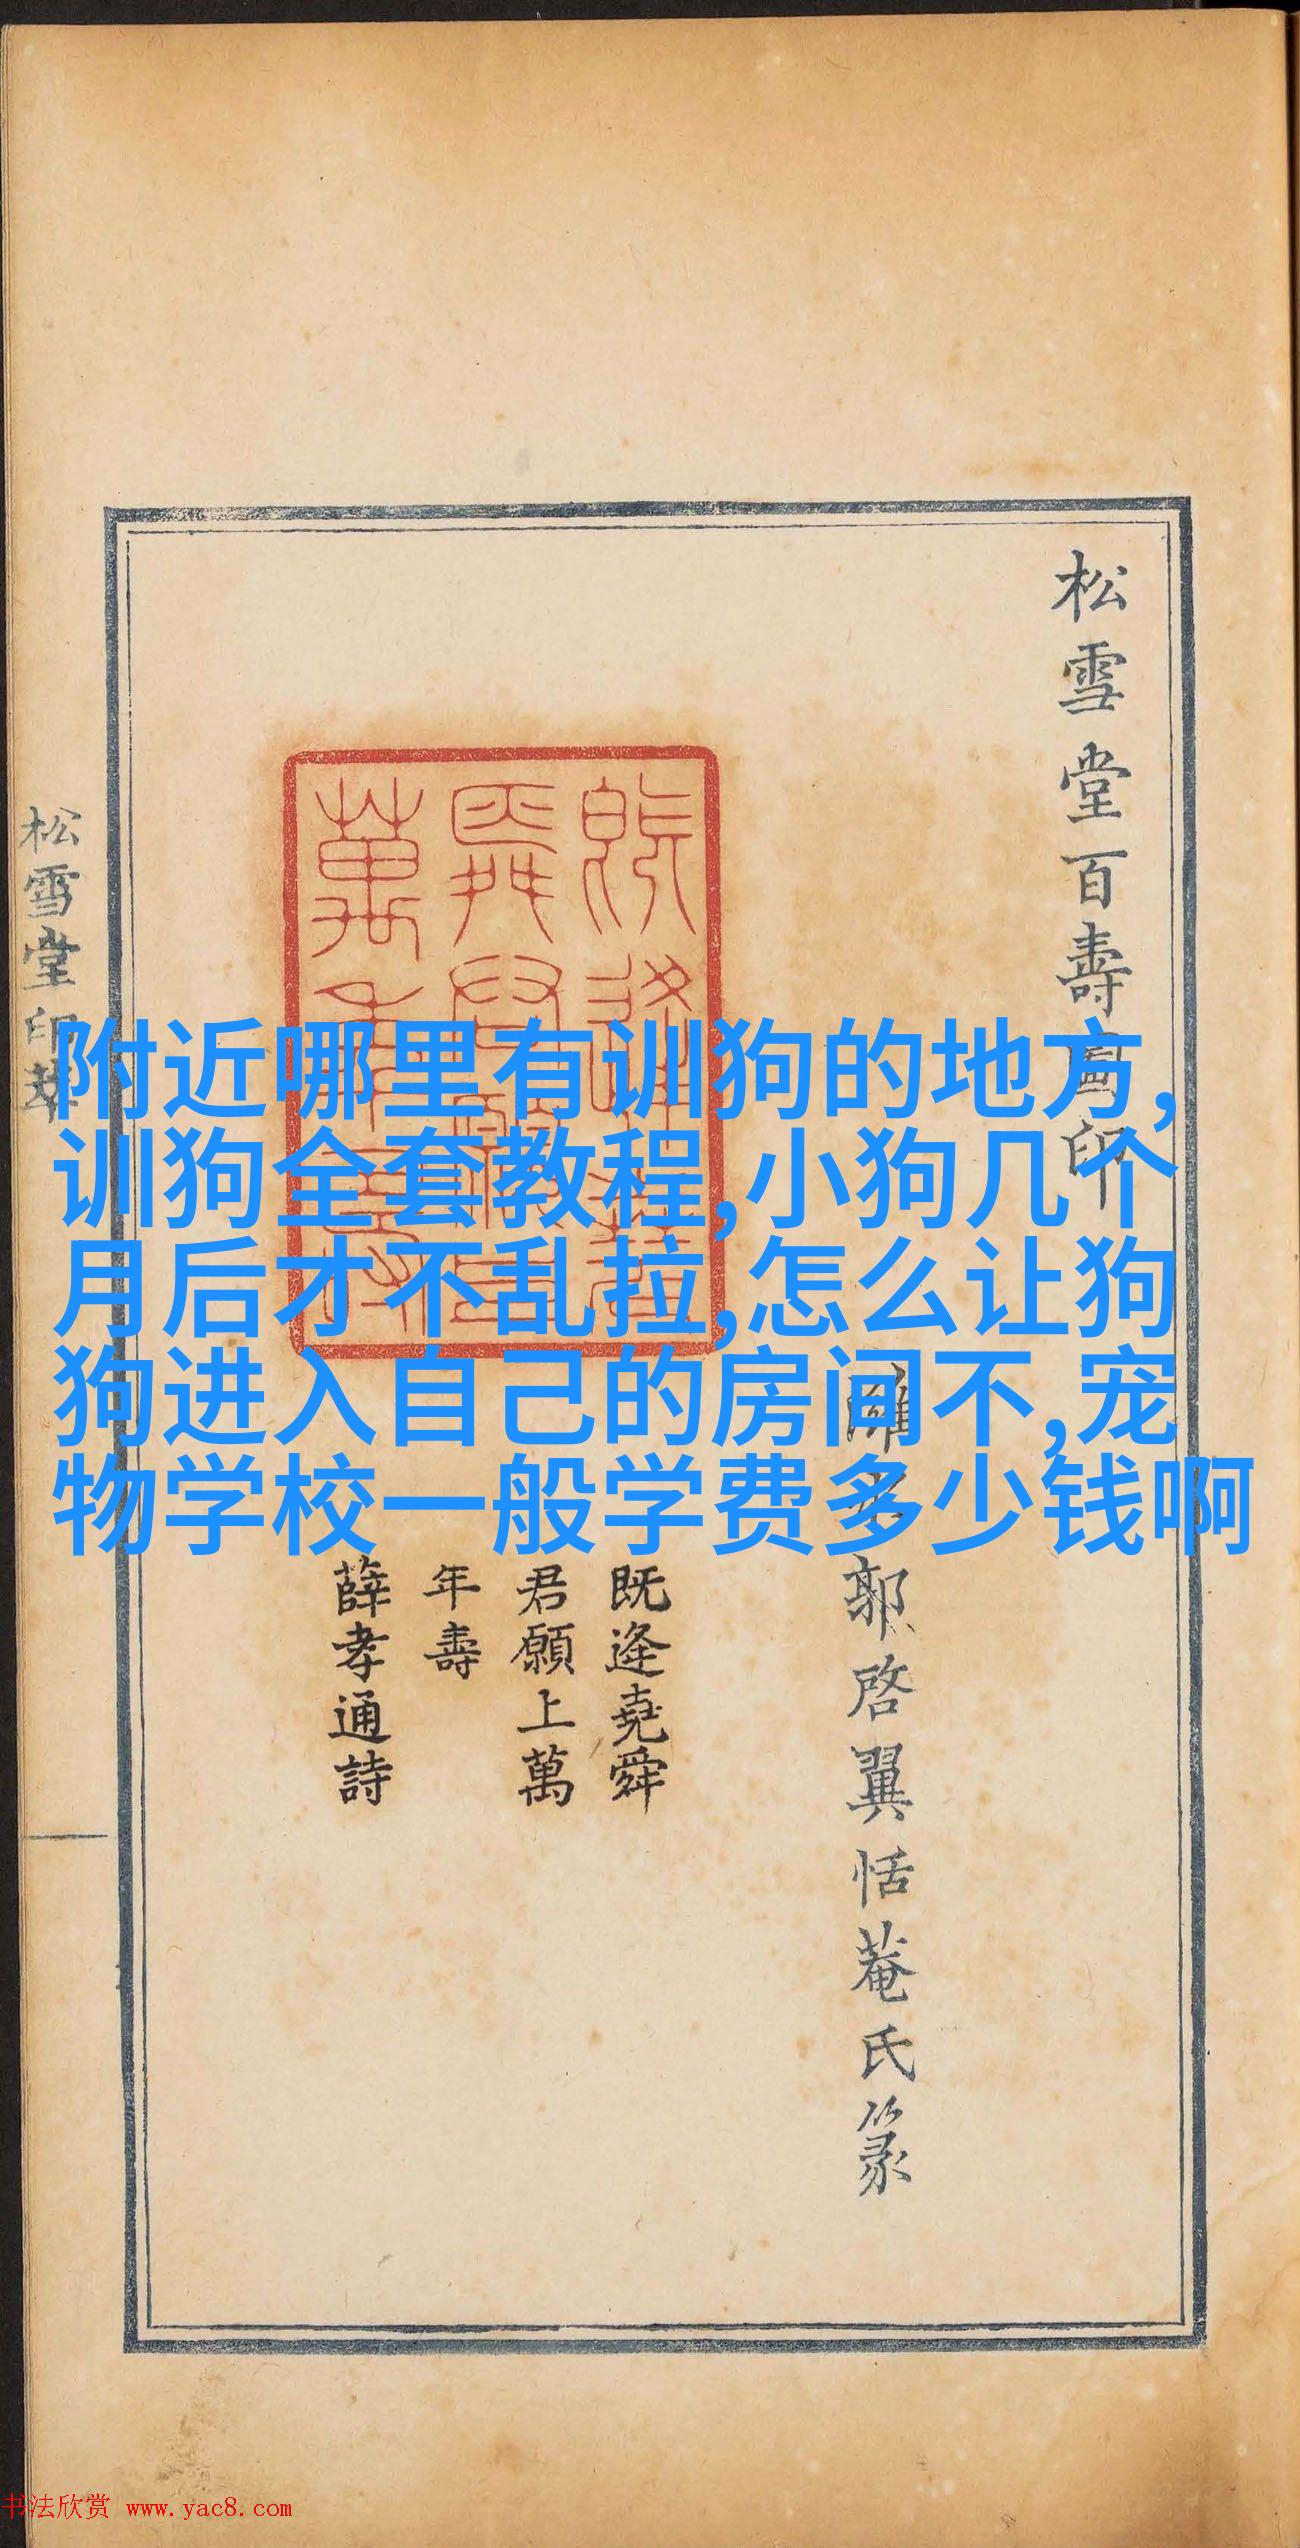 松雪堂百壽圖印
郭啓翼恬菴氏篆
既逢堯舜
君願上萬
年壽
薛孝通詩
松雪堂印萃
附近哪里有训狗的地方,
训狗全套教程,小狗几个
月后才不乱拉,怎么让狗
狗进入自己的房间不,宠
物学校一般学费多少钱啊
书法欣赏 www.yac8.com